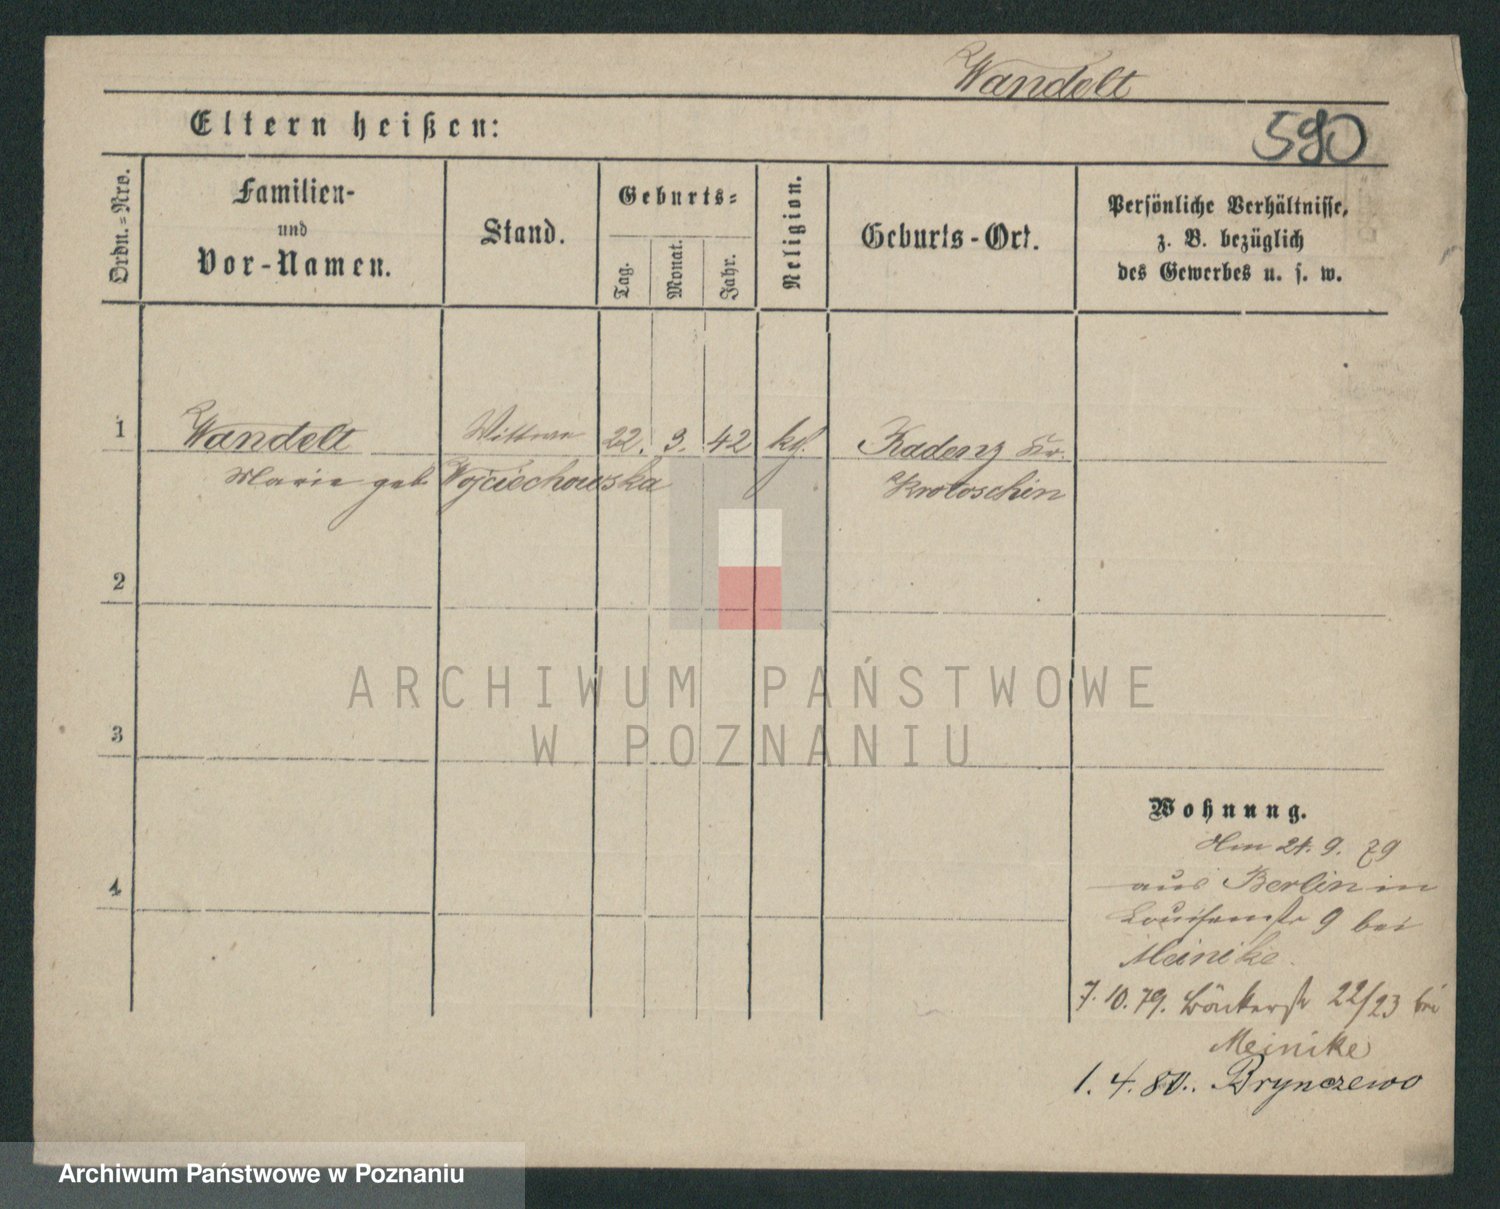 Wandelt
Eltern heißen:
590
Ordn.=Nro.
Familien-
und
Vor-Namen.
Stand.
Geburts=
Tag.
Monat.
Jahr.
Religion.
Geburts-Ort.
Persönliche Verhältnisse,
z. B. bezüglich
des Gewerbes u. s. w.
1
Wandelt Wittwe 22. 3. 42 kth. Radenz Kr.
Marie geb Wojciechowska Krotoschin
2
3
4
ARCHIWUM PAŃSTWOWE
W POZNANIU
Wohnung.
Am 21. 9. 79
aus Berlin in
Louisenstr 9 bei
Meinike.
7. 10. 79. Bäckerstr 22/23 bei
Meinike
1. 4. 80. Brynczewo
Archiwum Państwowe w Poznaniu